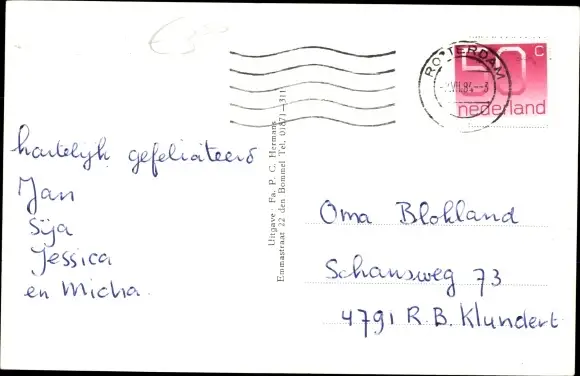 hartelijk gefeliciteerd
Jan
Sija
Jessica
en Micha.
Uitgave: Fa. P. C. Hermans
Emmastraat 22 den Bommel Tel. 01871-1311
ROTTERDAM
VII.84
50 C
nederland
Oma Blokland
Schansweg 73
4791 R.B. Klundert